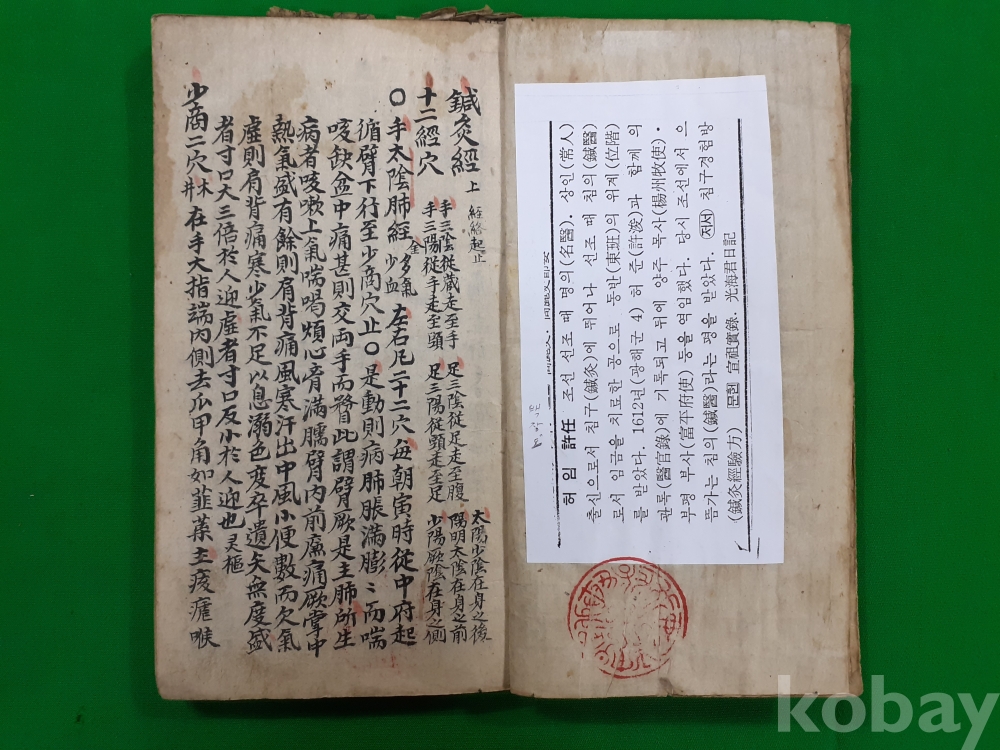 허 임 許任 조선 선조 때 명의(名醫). 상인(常人)
출신으로서 침구(鍼灸)에 뛰어나 선조 때 침의(鍼醫)
로서 임금을 치료한 공으로 동반(東班)의 위계(位階)
를 받았다. 1612년(광해군 4) 허 준(許浚)과 함께 의
관록(醫官錄)에 기록되고 뒤에 양주 목사(楊州牧使)·
부평 부사(富平府使) 등을 역임했다. 당시 조선에서 으
뜸가는 침의(鍼醫)라는 평을 받았다. 저서 침구경험방
(鍼灸經驗方) 문헌 宣祖實錄. 光海君日記
鍼灸經 上 經絡起止
太陽少陰在身之後
手三陰從蔵走至手 足三陰從足走至腹 陽明太陰在身之前
手三陽從手走至頭 足三陽從頭走至足 少陽厥陰在身之側
十二經穴
〇手太陰肺經 金 多氣少血 左右凡二十二穴每朝寅時從中府起
循臂下行至少商穴止〇是動則病肺脹滿膨〻而喘
咳缺盆中痛甚則交兩手而瞀此謂臂厥是主肺所生
病者咳嗽上氣喘喝煩心胷滿臑臂內前廉痛厥掌中
熱氣盛有餘則肩背痛風寒汗出中風小便數而欠氣
虛則肩背痛寒少氣不足以息溺色変卒遺矢無度盛
者寸口大三倍於人迎虛者寸口反小於人迎也 灵樞
少商二穴 木井 在手大指端內側去爪甲角如韮葉主痎瘧喉
kobay